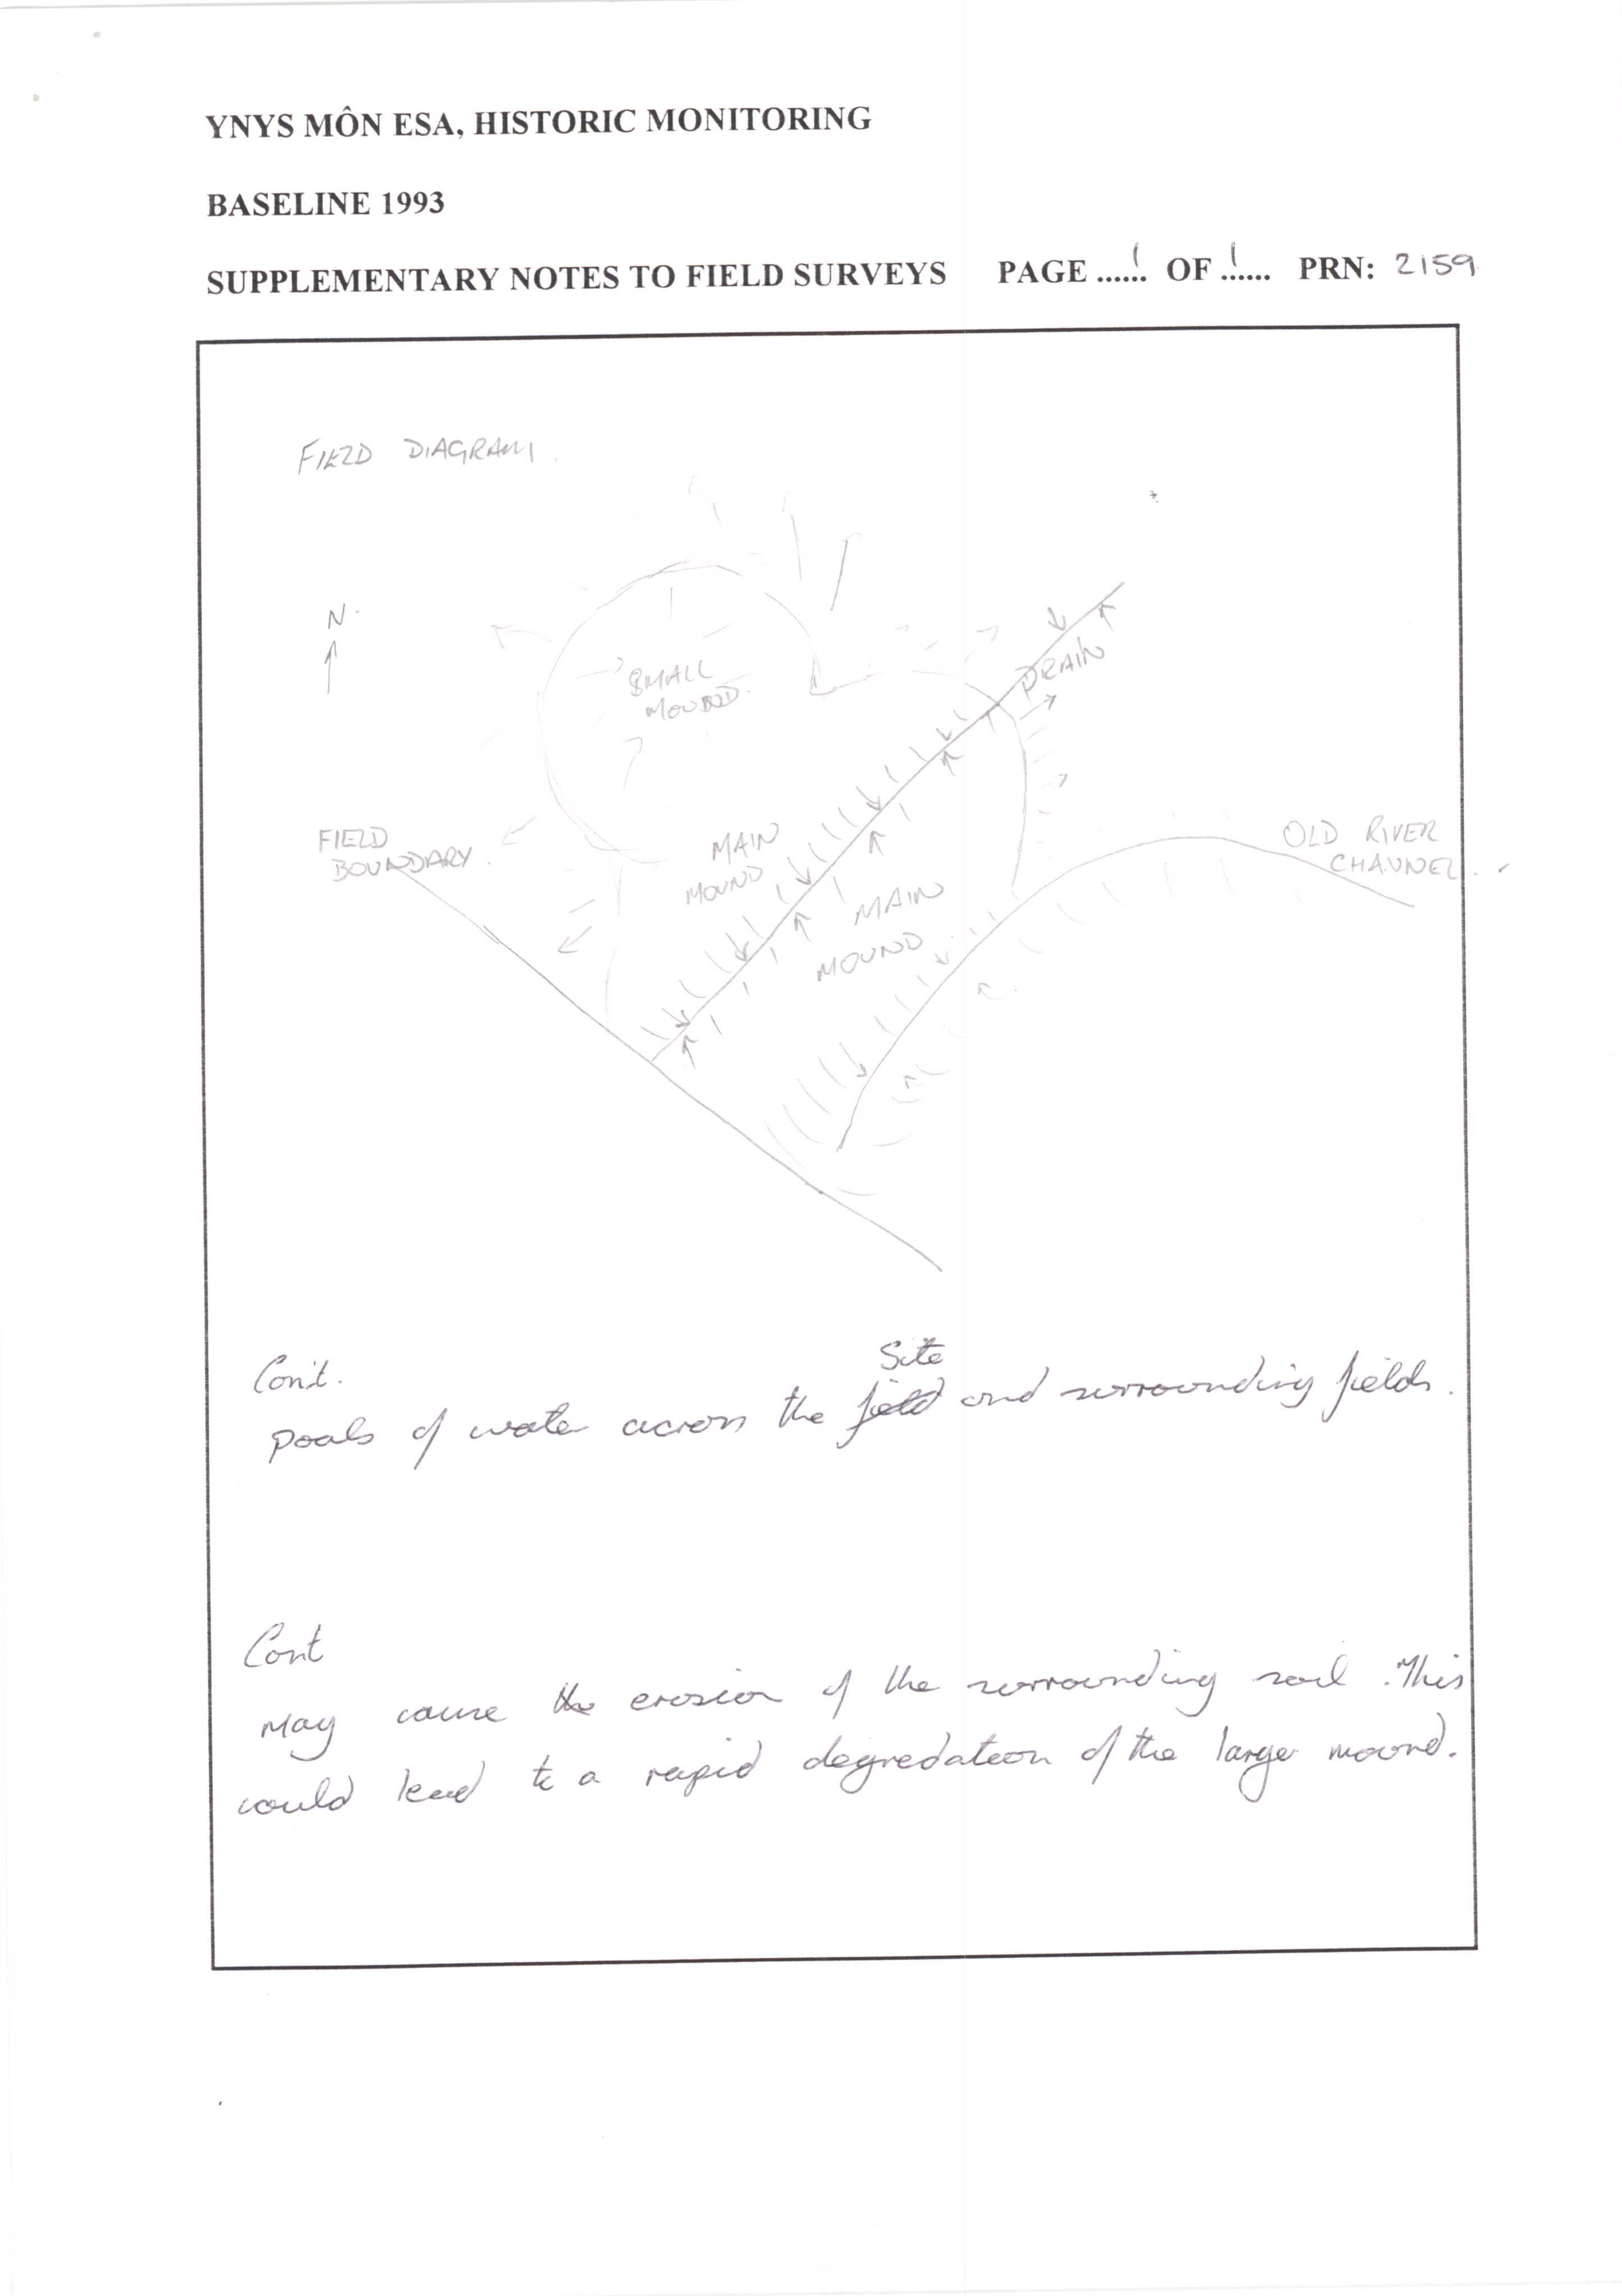 YNYS MÔN ESA, HISTORIC MONITORING
BASELINE 1993
SUPPLEMENTARY NOTES TO FIELD SURVEYS PAGE ...1.. OF 1..... PRN: 2159
FIELD DIAGRAM.
N.
SMALL
MOUND.
DRAIN
FIELD
BOUNDARY.
MAIN
MOUND
MAIN
MOUND
OLD RIVER
CHANNEL.
Con't.
Site
pools of water across the field and surrounding fields.
Cont
may cause the erosion of the surrounding soil. This
could lead to a rapid degredation of the large mound.